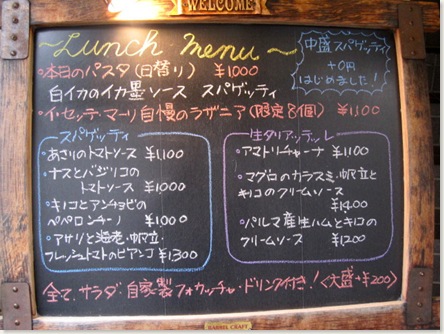 WELCOME
~Lunch Menu~
中盛スパゲッティ
+0円
はじめました!
・本日のパスタ(日替り) ¥1000
白イカのイカ墨ソース スパゲッティ
・イ・セッテ・マーリ自慢のラザニア(限定8個) ¥1500
スパゲッティ
・あさりのトマトソース ¥1,100
・ナスとバジリコの
トマトソース ¥1000
・キノコとアンチョビの
ペペロンチーノ ¥1000
・アサリと海老・帆立・
フレッシュトマトのビアンコ ¥1300
生タリアテッレ
・アマトリチャーナ ¥1,100
・マグロのカラスミ・帆立と
キノコのクリームソース
¥1400
・パルマ産生ハムとキノコの
クリームソース ¥1200
全て、サラダ・自家製フォカッチャ・ドリンク付き!<大盛+¥200>
BARREL CRAFT